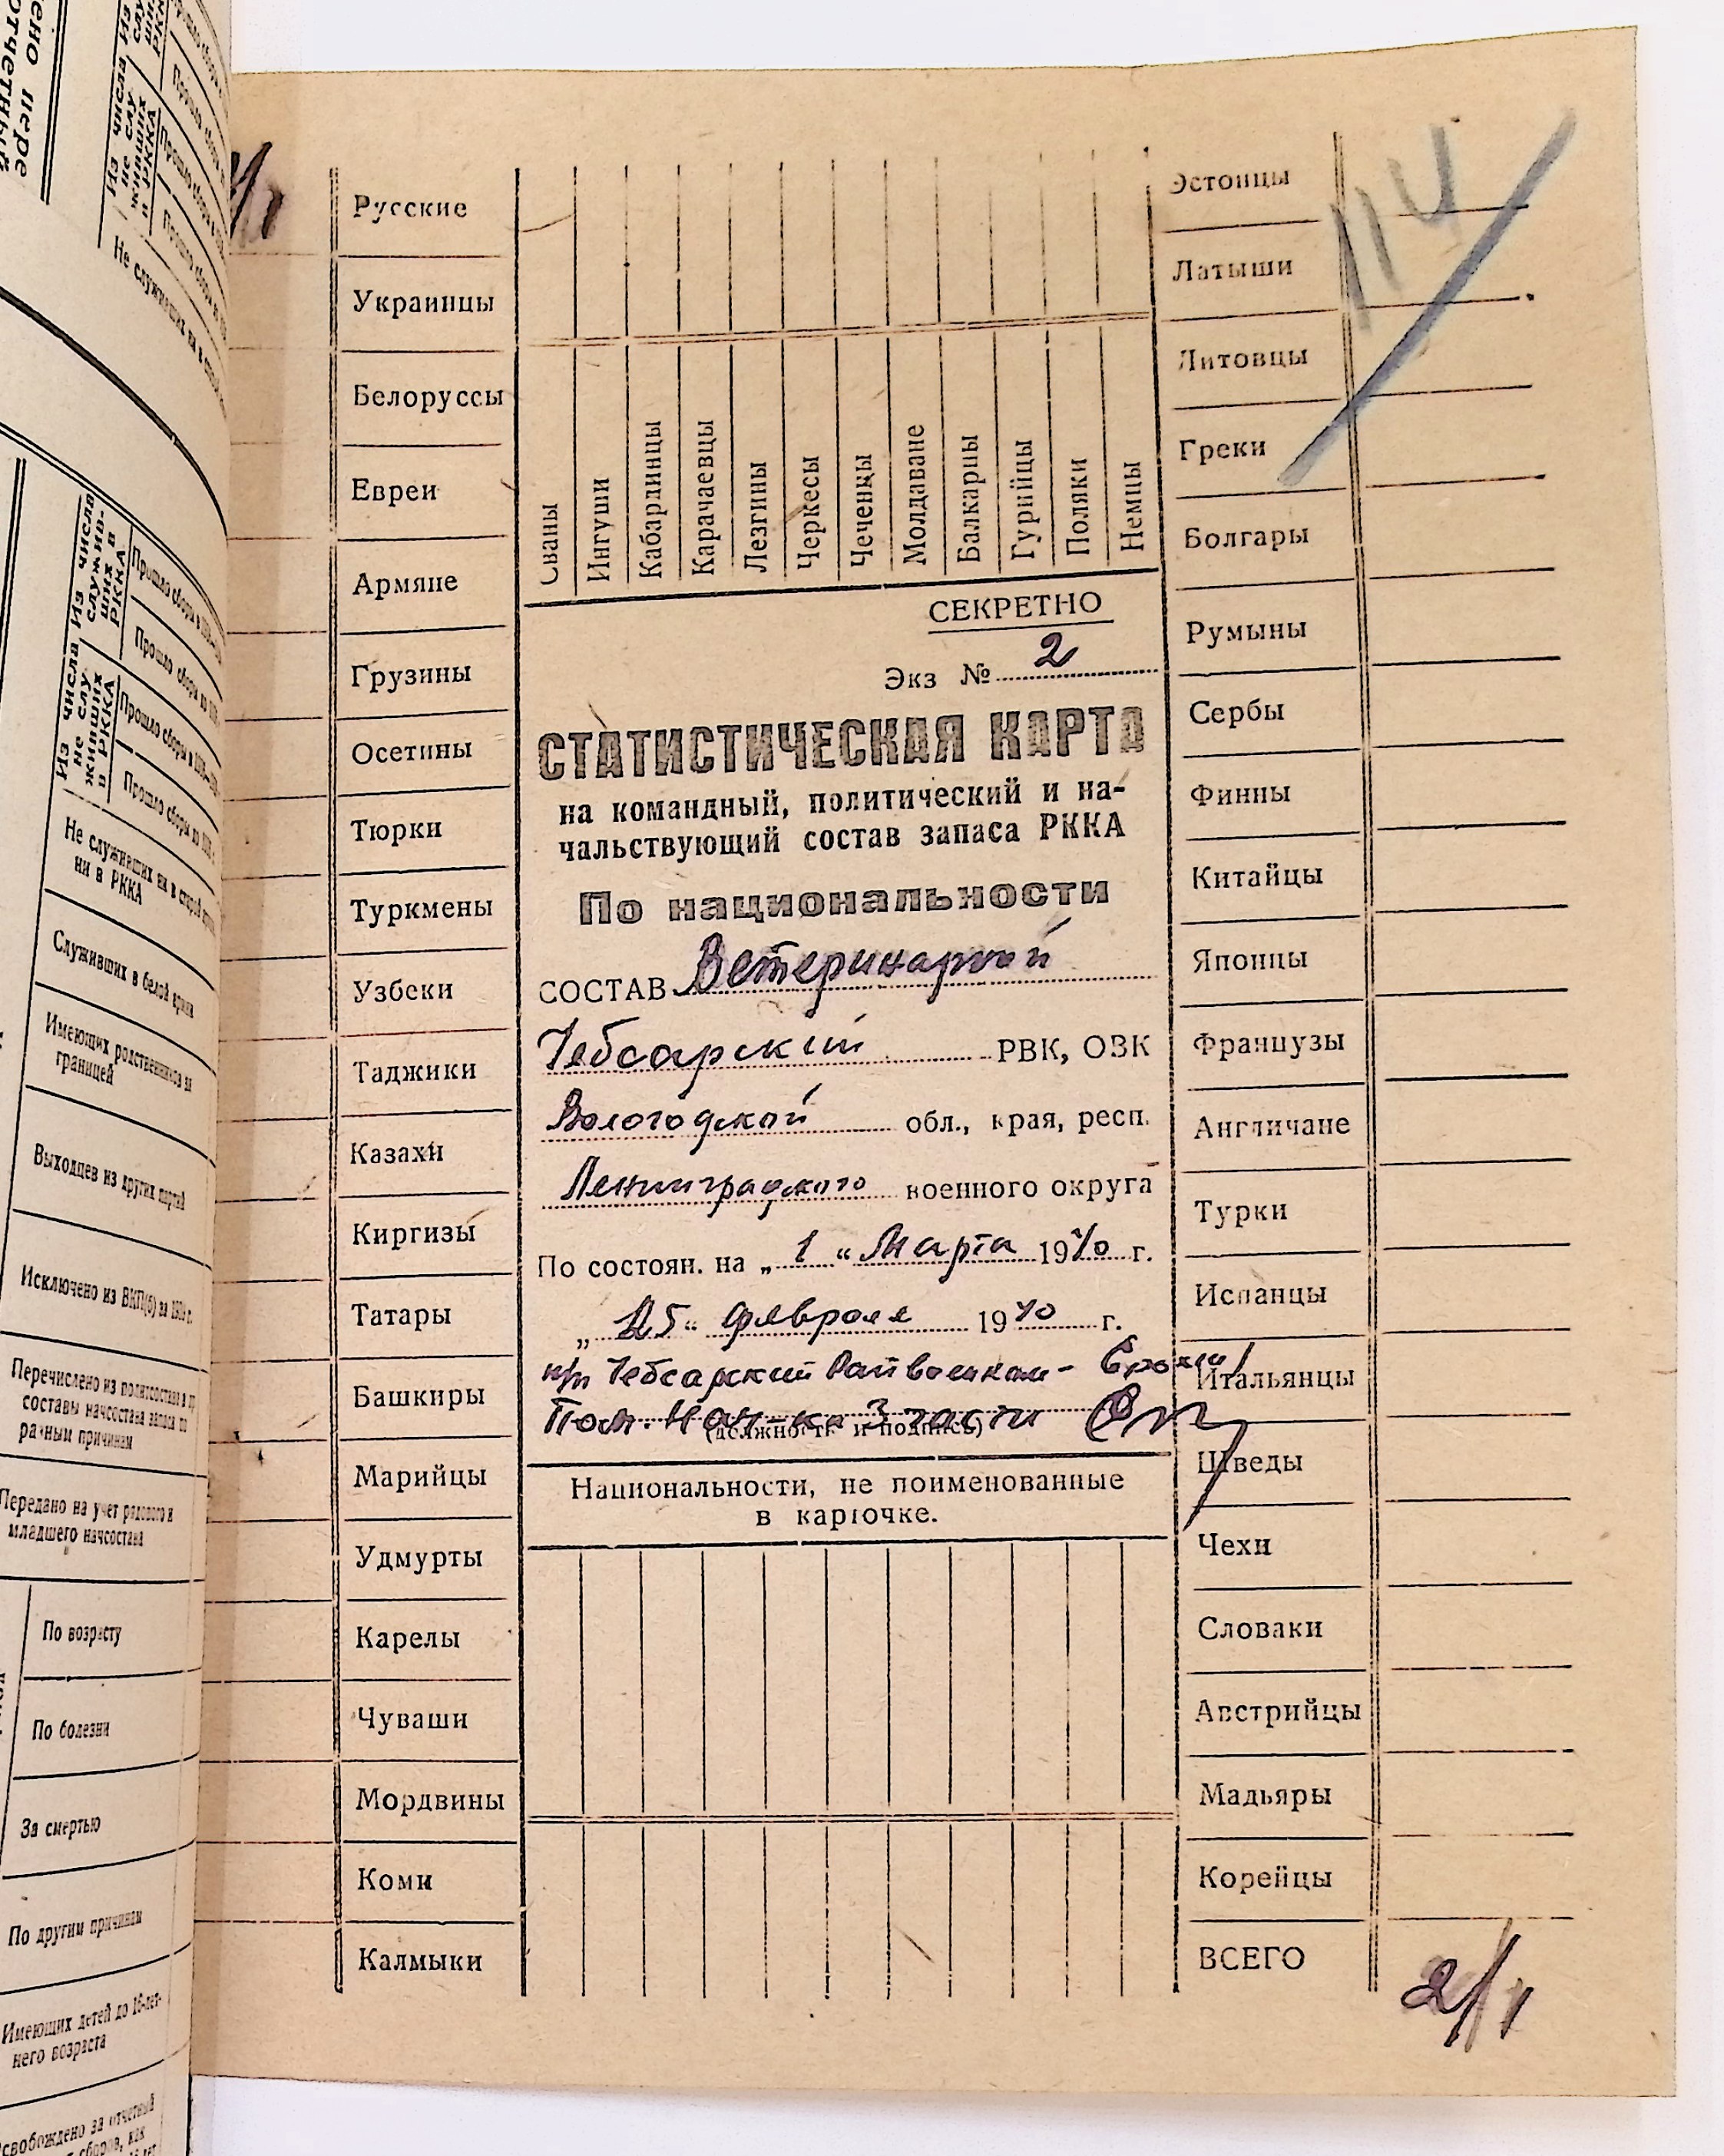 Русские
Украинцы
Белоруссы
Евреи
Армяне
Грузины
Осетины
Тюрки
Туркмены
Узбеки
Таджики
Казахи
Киргизы
Татары
Башкиры
Марийцы
Удмурты
Карелы
Чуваши
Мордвины
Коми
Калмыки
Сваны
Ингуши
Кабардинцы
Карачаевцы
Лезгины
Черкесы
Чеченцы
Молдаване
Балкарцы
Гурийцы
Поляки
Немцы
СЕКРЕТНО
Экз № 2
СТАТИСТИЧЕСКАЯ КАРТА
на командный, политический и на-
чальствующий состав запаса РККА
По национальности
СОСТАВ Ветеринарный
Чебсарский РВК, ОВК
Вологодской обл., края, респ.
Ленинградского военного округа
По состоян. на „1“ Марта 1940 г.
„25“ февраля 1940 г.
п/п Чебсарский Райвоенком -
Пом. Нач-ка 3 части
(должность и подпись)
Национальности, не поименованные
в карточке.
Эстонцы
Латыши
Литовцы
Греки
Болгары
Румыны
Сербы
Финны
Китайцы
Японцы
Французы
Англичане
Турки
Испанцы
Итальянцы
Шведы
Чехи
Словаки
Австрийцы
Мадьяры
Корейцы
ВСЕГО 2/1
114
Из числа
служив-
ших в
РККА
Из числа
не слу
живших
в РККА
Не служивших ни в старой
ни в РККА
Служивших в белой армии
Имеющих родственников за
границей
Выходцев из других партий
Исключено из ВКП(б) за
Перечислено из политсостава в
составы начсостава запаса по
разным причинам
Передано на учет рядового и
младшего начсостава
По возрасту
По болезни
За смертью
По другим причинам
Имеющих детей до 16-лет-
него возраста